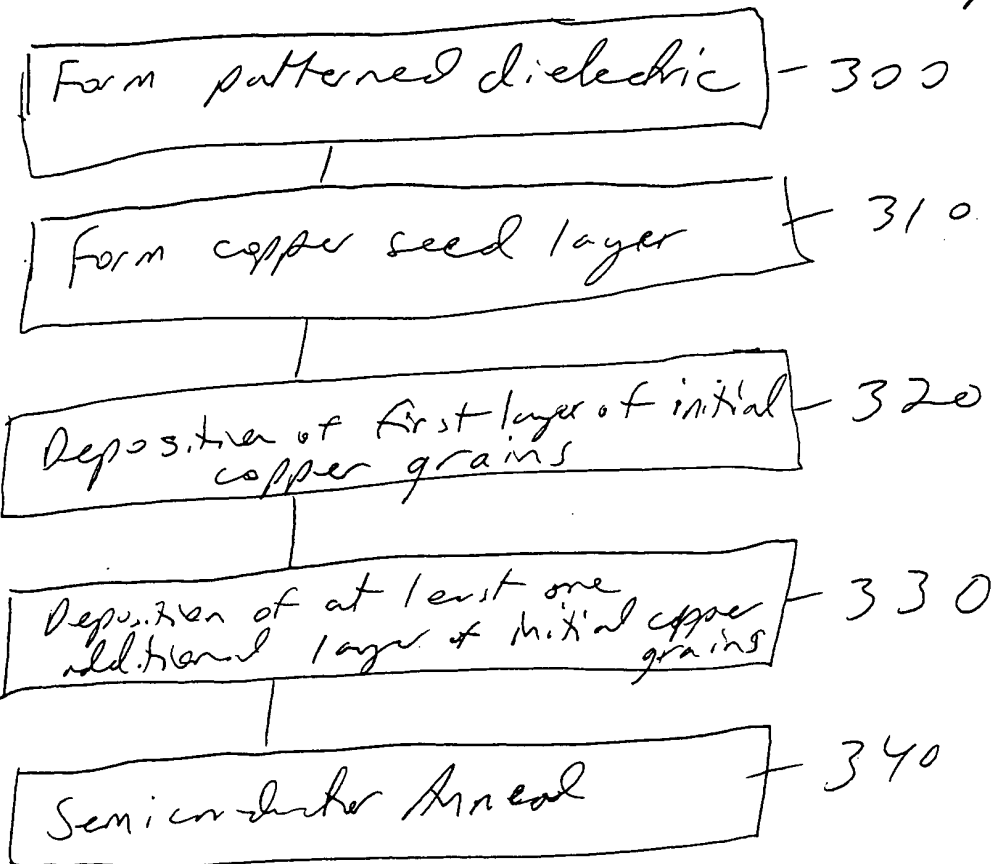 Form patterned dielectric - 300
Form copper seed layer - 310
Deposition of first layer of initial - 320
copper grains
Deposition of at least one - 330
additional layer of initial copper
grains
Semiconductor Anneal - 340